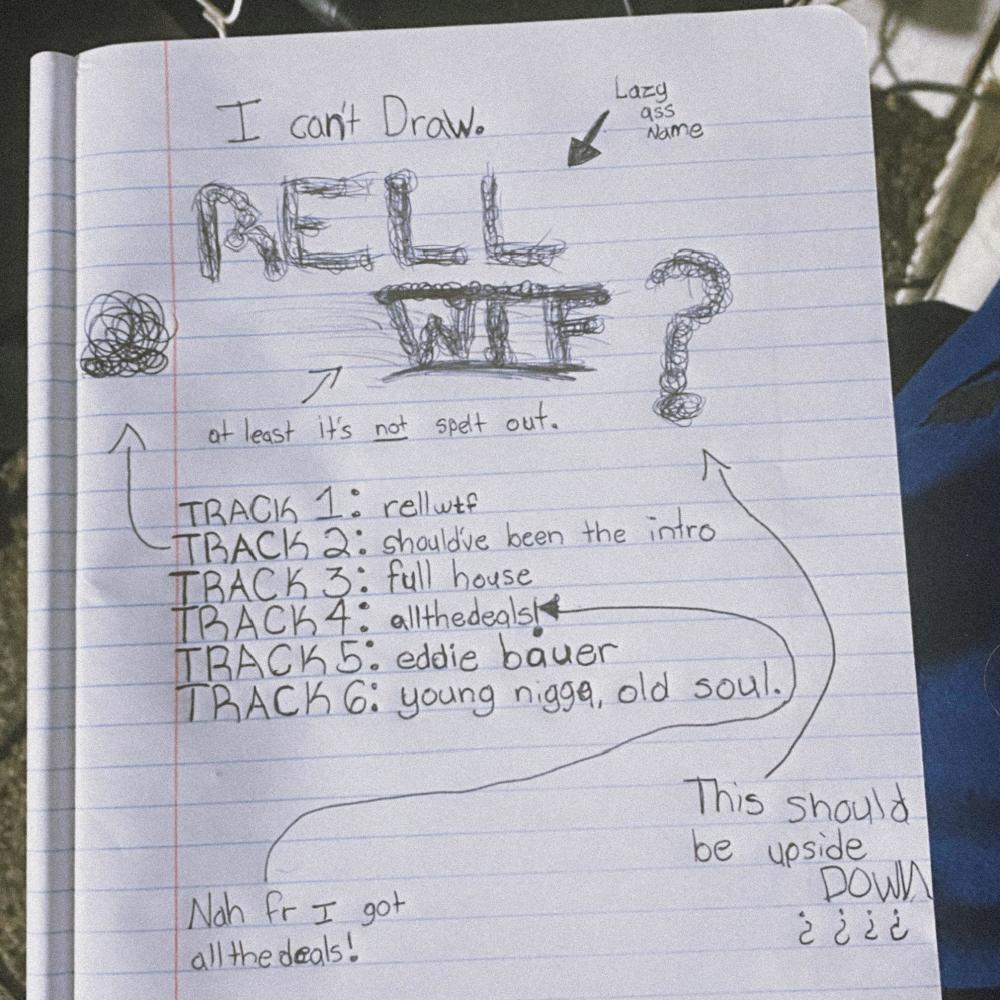 I can't Draw.
Lazy
ass
Name
RELL
WTF ?
at least it's not spelt out.
TRACK 1: rellwtf
TRACK 2: should've been the intro
TRACK 3: full house
TRACK 4: allthedeals!
TRACK 5: eddie bauer
TRACK 6: young nigga, old soul.
This should
be upside
DOWN
¿ ¿ ¿ ¿
Nah fr I got
allthedeals!